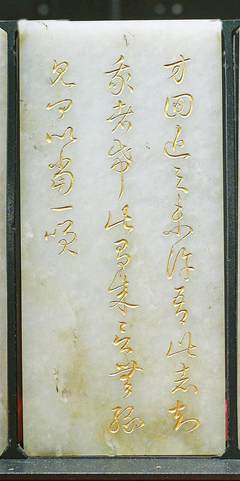 方回近之未許吾此志知
我者希此有成言無緣
見卿以當一笑